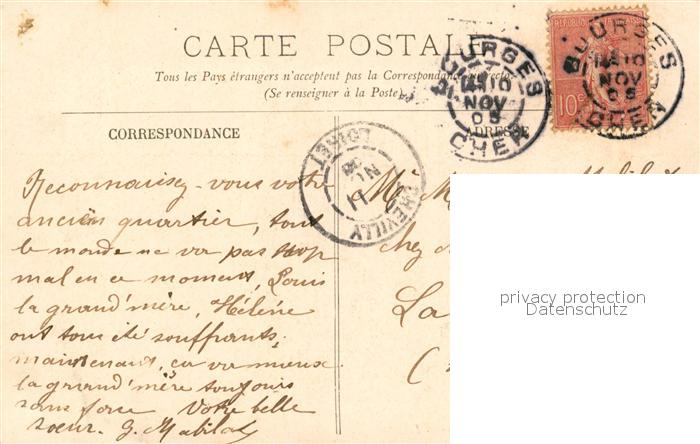 CARTE POSTALE
Tous les Pays étrangers n'acceptent pas la Correspondance au recto
(Se renseigner à la Poste)
BOURGES
10
NOV
05
CHER
BOURGES
10
NOV
05
CHER
10c
CORRESPONDANCE
ADRESSE
LOIRET
CHEVILLY
Reconnaissez-vous votre
ancien quartier, tout
le monde ne va pas trop
mal en ce moment, Louis
la grand'mère, Hélène
ont tous été souffrants,
maintenant, ça va mieux
la grand'mère toujours
sans force Votre belle
soeur. G. Mabilat
M
chez
La
privacy protection
Datenschutz